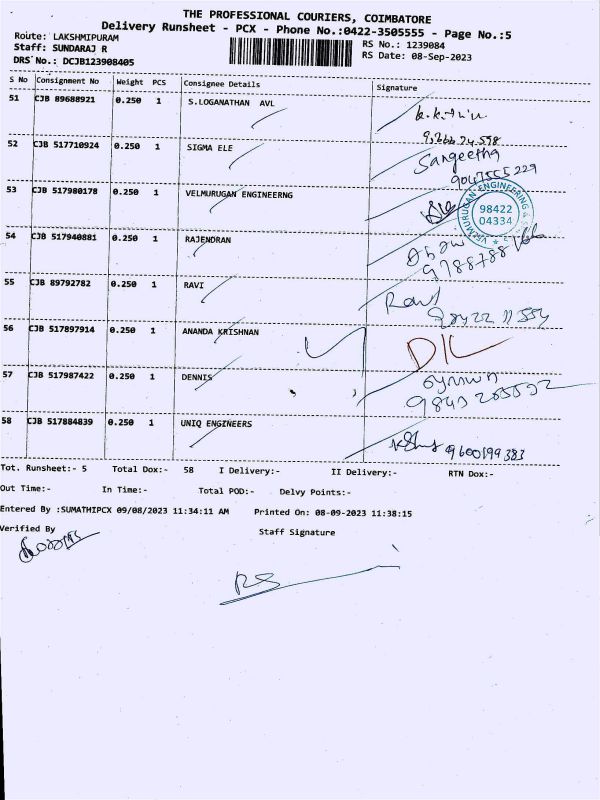 THE PROFESSIONAL COURIERS, COIMBATORE
Delivery Runsheet - PCX - Phone No.:0422-3505555 - Page No.:5
Route: LAKSHMIPURAM
RS No.: 1239084
Staff: SUNDARAJ R
RS Date: 08-Sep-2023
DRS No.: DCJB123908405
S No Consignment No Weight PCS Consignee Details Signature
51 CJB 89688921 0.250 1 S.LOGANATHAN AVL
52 CJB 517710924 0.250 1 SIGMA ELE Sangeetha
9047555229
53 CJB 517980178 0.250 1 VELMURUGAN ENGINEERNG
VELMURUGAN ENGINEERING
98422
04334
54 CJB 517940881 0.250 1 RAJENDRAN
9788788
55 CJB 89792782 0.250 1 RAVI Ravi
56 CJB 517897914 0.250 1 ANANDA KRISHNAN DIL
57 CJB 517987422 0.250 1 DENNIS
58 CJB 517884839 0.250 1 UNIQ ENGINEERS 9600199383
Tot. Runsheet:- 5 Total Dox:- 58 I Delivery:- II Delivery:- RTN Dox:-
Out Time:- In Time:- Total POD:- Delvy Points:-
Entered By :SUMATHIPCX 09/08/2023 11:34:11 AM Printed On: 08-09-2023 11:38:15
Verified By
Staff Signature
RS